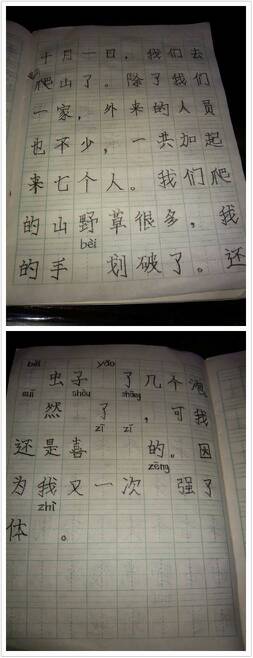 十月一日，我们去
爬山了。除了我们
一家，外来的人员
也不少，一共加起
来七个人。我们爬
的山野草很多，我
bèi
的手 划破了。还
bèi yǎo
虫子 了几个泡
suī shòu shāng
然 了 ，可我
zī zī
还是喜 的。因
zēng
为我又一次 强了
zhì
体 。